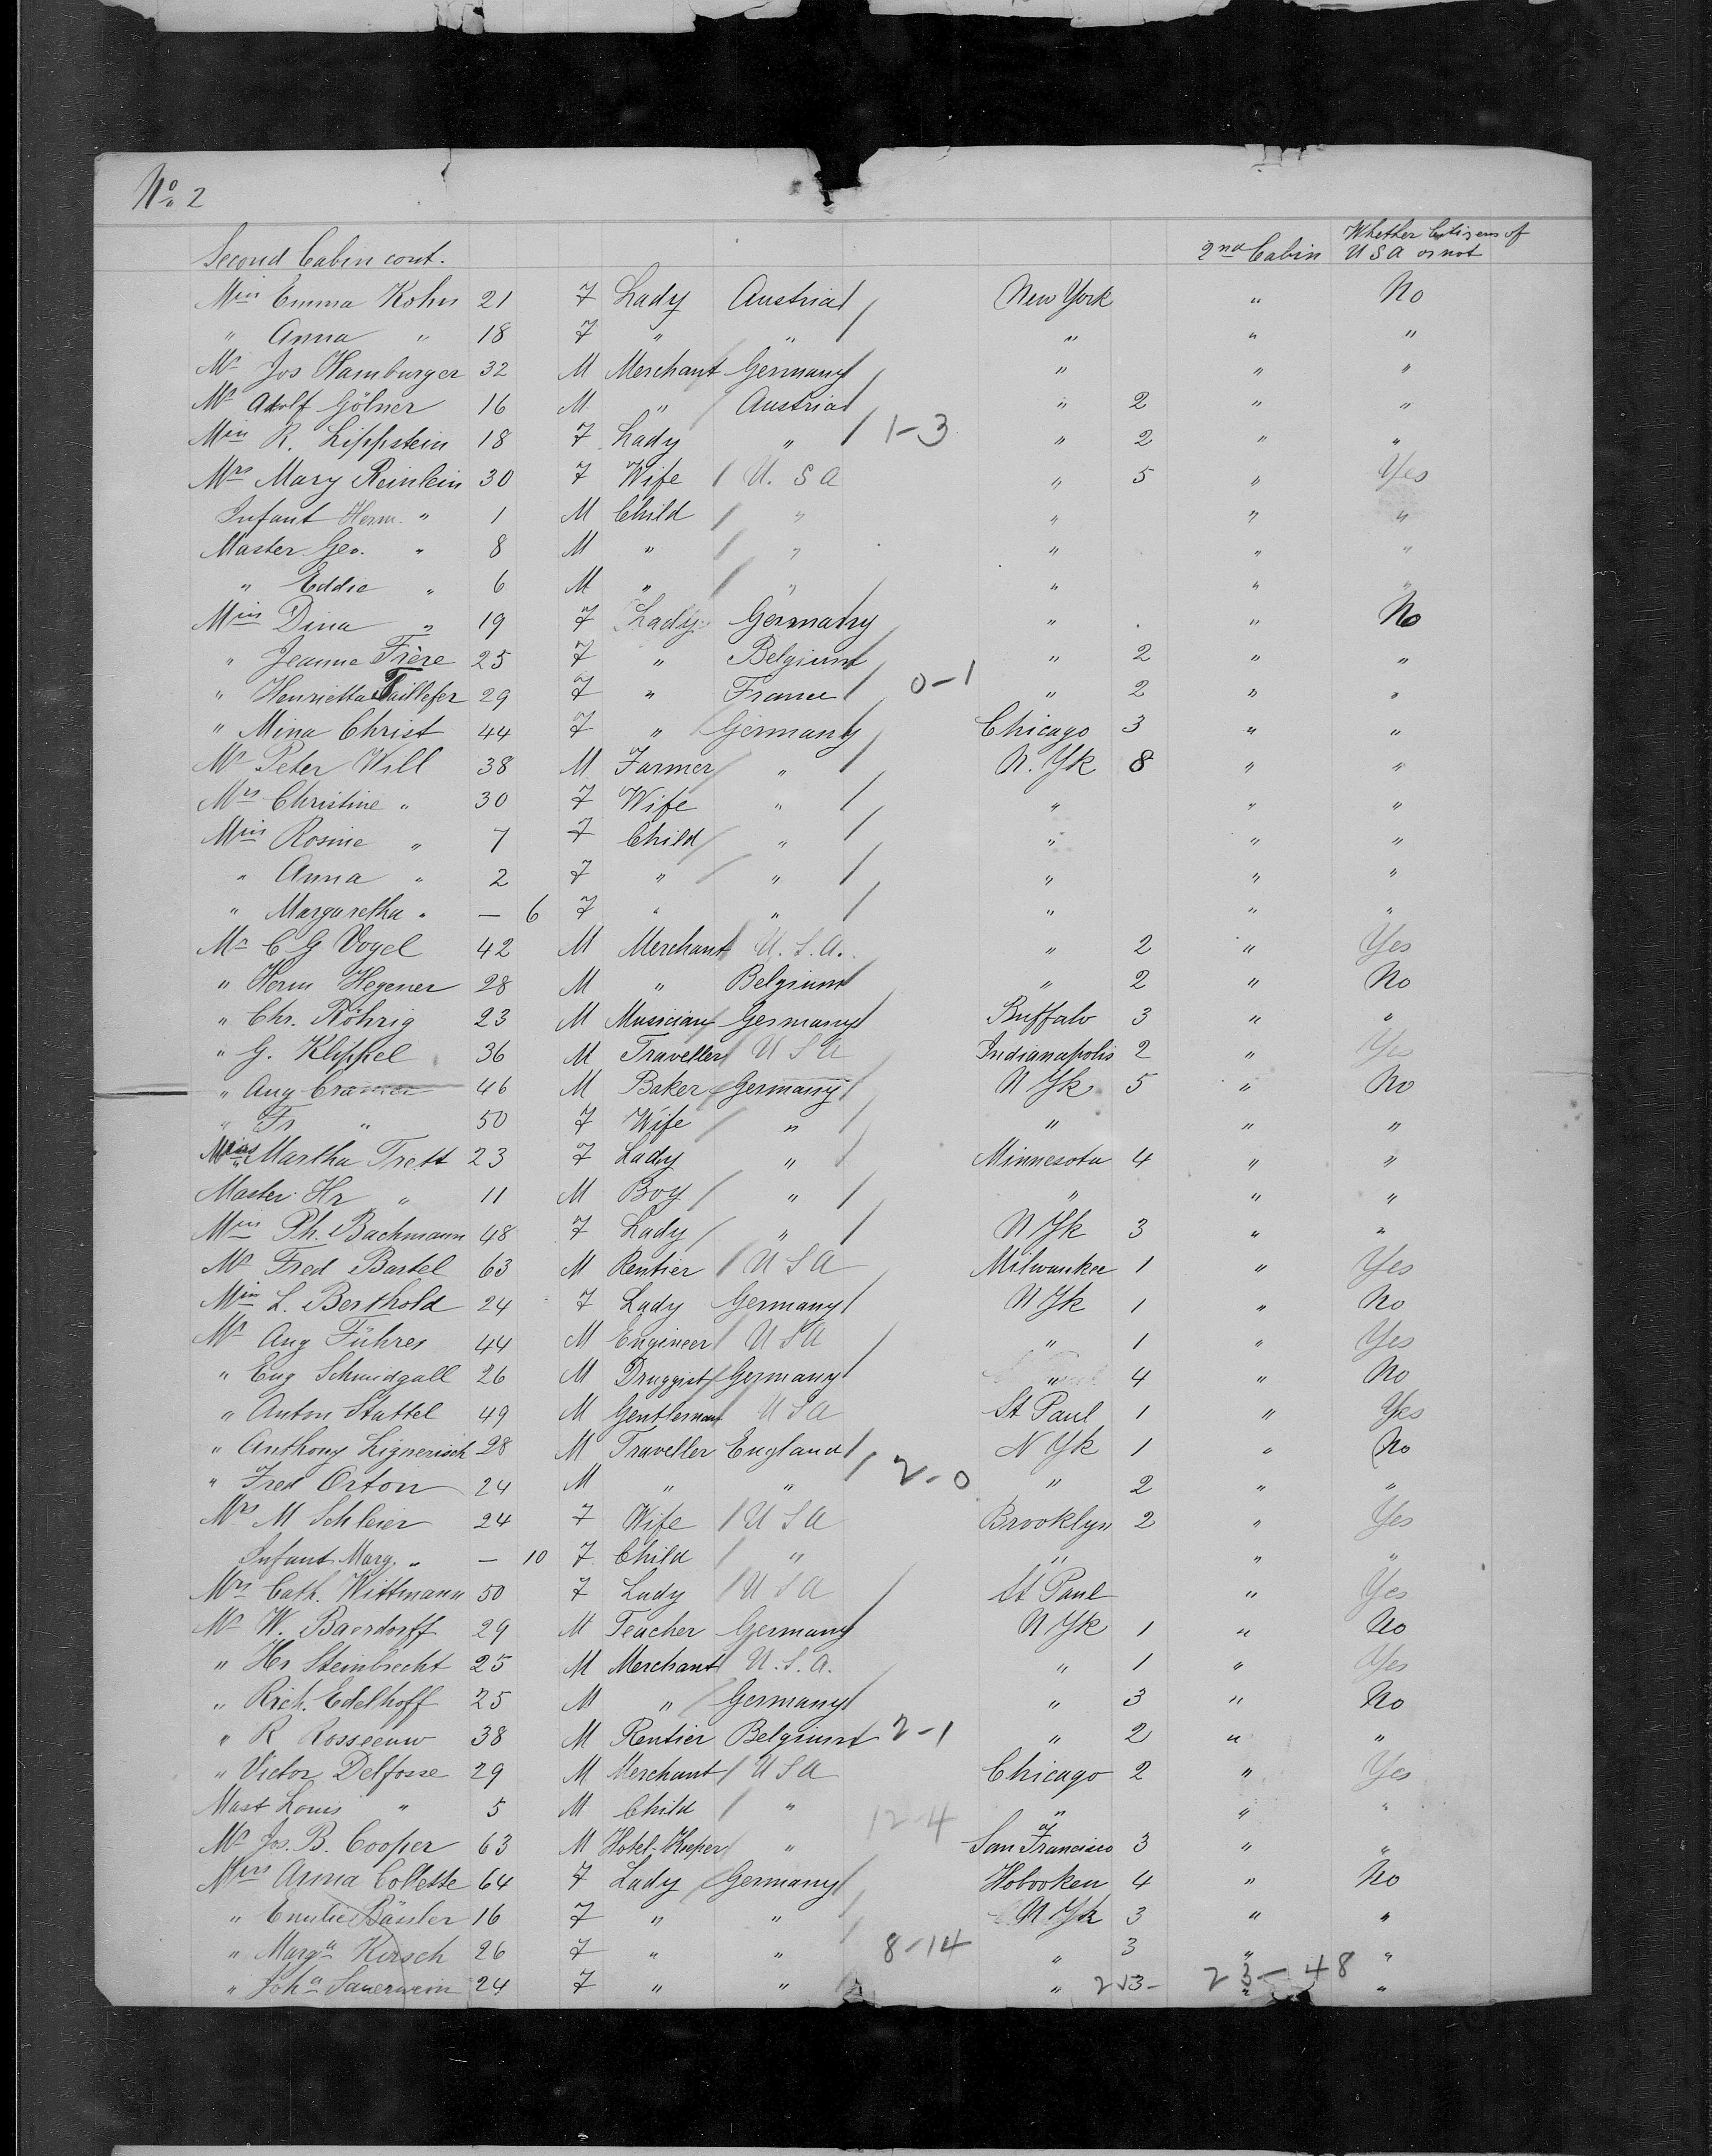 No. 2
Second Cabin cont. 2nd Cabin Whether Citizens of U S A or not
Miss Emma Kohn 21 F Lady Austria New York " No
" Anna " 18 F " " " " "
Mr Jos Hamburger 32 M Merchant Germany " " "
Mr Adolf Gölner 16 M " Austria " 2 " "
Miss R. Lippstein 18 F Lady " 1-3 " 2 " "
Mrs Mary Reinlein 30 F Wife U. S A " 5 " Yes
Infant Herm. " 1 M Child " " " "
Master Geo. " 8 M " " " " "
" Eddie " 6 M " " " " "
Miss Dina " 19 F Lady Germany " " No
" Jeanne Frère 25 F " Belgium " 2 " "
" Henrietta Taillefer 29 F " France 0-1 " 2 " "
" Mina Christ 44 F " Germany Chicago 3 " "
Mr Peter Will 38 M Farmer " N. Yk 8 " "
Mrs Christine " 30 F Wife " " " "
Miss Rosine " 7 F Child " " " "
" Anna " 2 F " " " " "
" Margaretha " — 6 F " " " " "
Mr C G Vogel 42 M Merchant U. S. A. " 2 " Yes
" Herm Hegener 28 M " Belgium " 2 " No
" Chr. Röhrig 23 M Musician Germany Buffalo 3 " "
" G. Klippel 36 M Traveller U S A Indianapolis 2 " Yes
" Aug Cramer 46 M Baker Germany N Yk 5 " No
" Fr " 50 F Wife " " " "
Miss Martha Trett 23 F Lady " Minnesota 4 " "
Master Hr " 11 M Boy " " " "
Miss Ph. Bachmann 48 F Lady " N Yk 3 " "
Mr Fred Bartel 63 M Rentier U S A Milwaukee 1 " Yes
Miss L. Berthold 24 F Lady Germany N Yk 1 " No
Mr Aug Führer 44 M Engineer U S A " 1 " Yes
" Eug Schmidgall 26 M Druggist Germany " 4 " No
" Anton Stattel 49 M Gentleman U S A St Paul 1 " Yes
" Anthony 28 M Traveller England N Yk 1 " No
" Fred Orton 24 M " " 2-0 " 2 " "
Mrs M Schleier 24 F Wife U S A Brooklyn 2 " Yes
Infant Marg. " — 10 F Child " " " "
Mrs Cath. Wittmann 50 F Lady U S A St Paul " Yes
Mr W. Baerdorff 29 M Teacher Germany N Yk 1 " No
" Hr Steinbrecht 25 M Merchant U. S. A. " 1 " Yes
" Rich. Edelhoff 25 M " Germany " 3 " No
" R Rosseeuw 38 M Rentier Belgium 2-1 " 2 " "
" Victor Delfosse 29 M Merchant U S A Chicago 2 " Yes
Mast Louis " 5 M Child " 12-4 " " "
Mr Jos. B. Cooper 63 M Hotel-Keeper " San Francisco 3 " "
Miss Anna Collette 64 F Lady Germany Hoboken 4 " No
" Emilie Bässler 16 F " " N Yk 3 " "
" Marga Kirsch 26 F " " 8-14 " 3 " "
" Joha Sauerwein 24 F " " " 3 23-48 " "